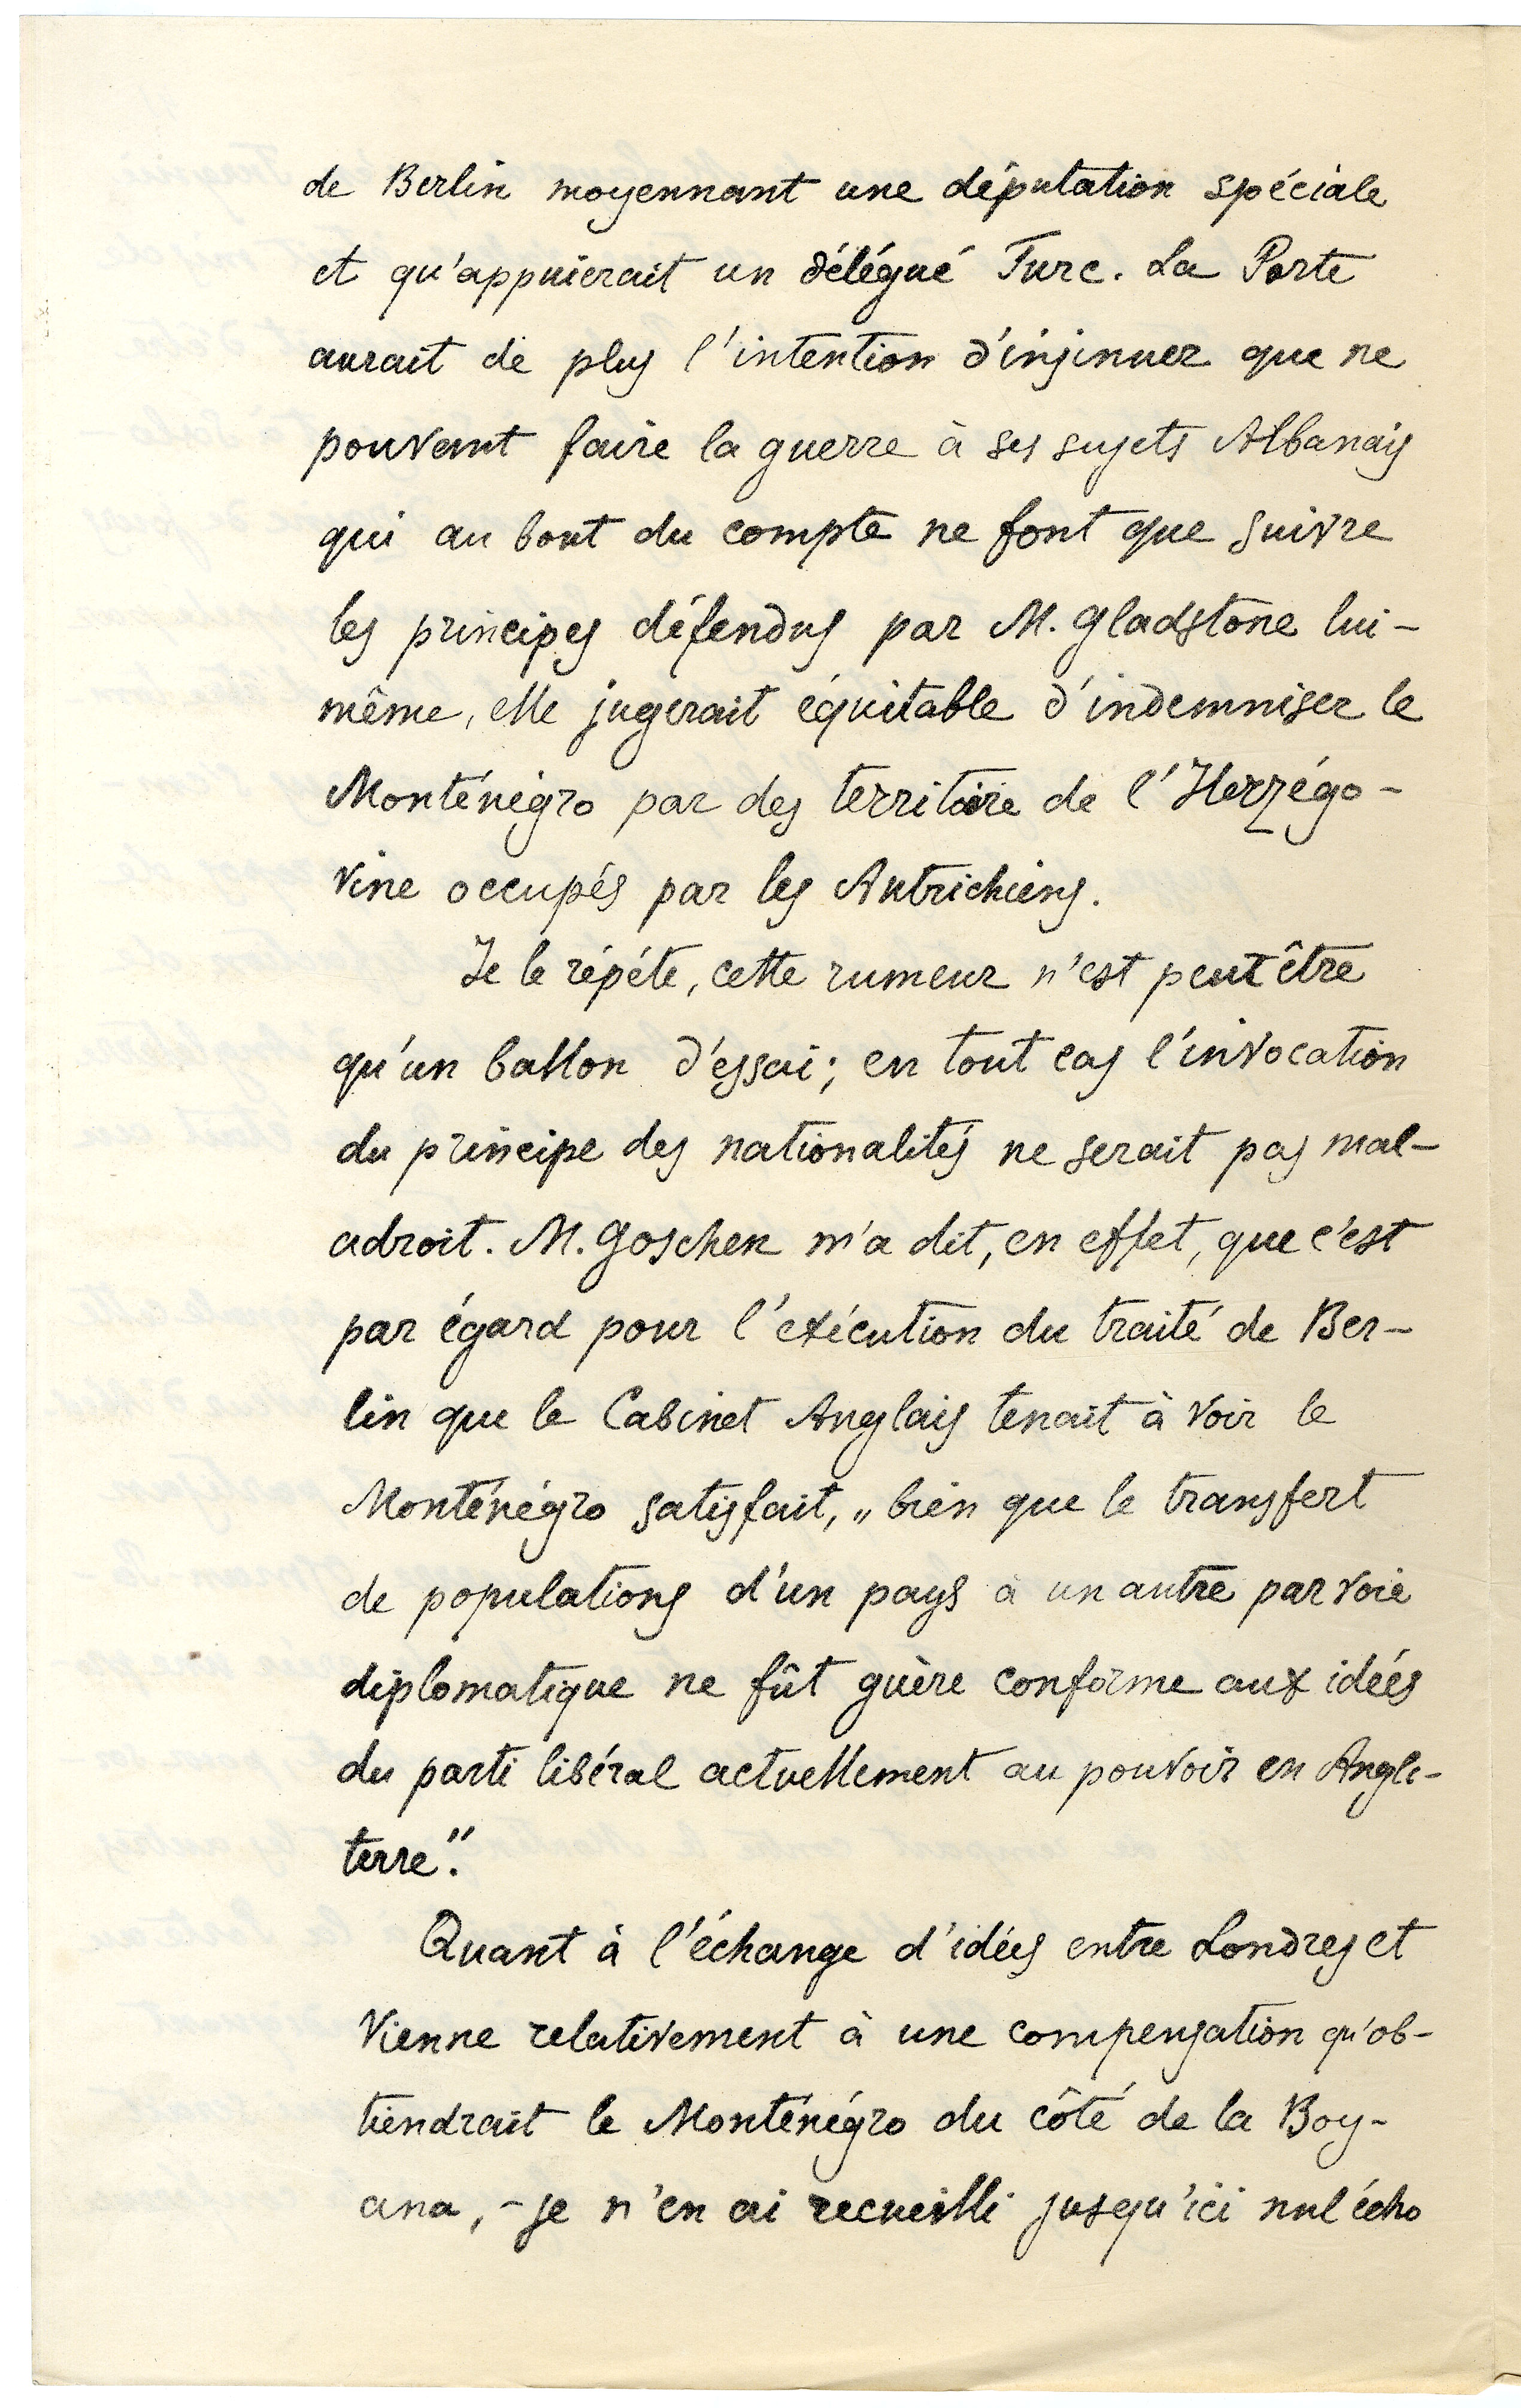 de Berlin moyennant une députation spéciale
et qu'appuierait un délégué Turc. La Porte
aurait de plus l'intention d'insinuer que ne
pouvant faire la guerre à ses sujets Albanais
qui au bout du compte ne font que suivre
les principes défendus par M. Gladstone lui-
même, elle jugerait équitable d'indemniser le
Monténégro par des territoire de l'Herzégo-
vine occupés par les Autrichiens.
Je le répéte, cette rumeur n'est peut être
qu'un ballon d'essai; en tout cas l'invocation
du principe des nationalités ne serait pas mal-
adroit. M. Goschen m'a dit, en effet, que c'est
par égard pour l'exécution du traité de Ber-
lin que le Cabinet Anglais tenait à voir le
Monténégro satisfait, „bien que le transfert
de populations d'un pays à un autre par voie
diplomatique ne fût guère conforme aux idées
du parti libéral actuellement au pouvoir en Angle-
terre".
Quant à l'échange d'idées entre Londres et
Vienne relativement à une compensation qu'ob-
tiendrait le Monténégro du côté de la Boy-
ana, - je n'en ai recueilli jusqu'ici nul écho